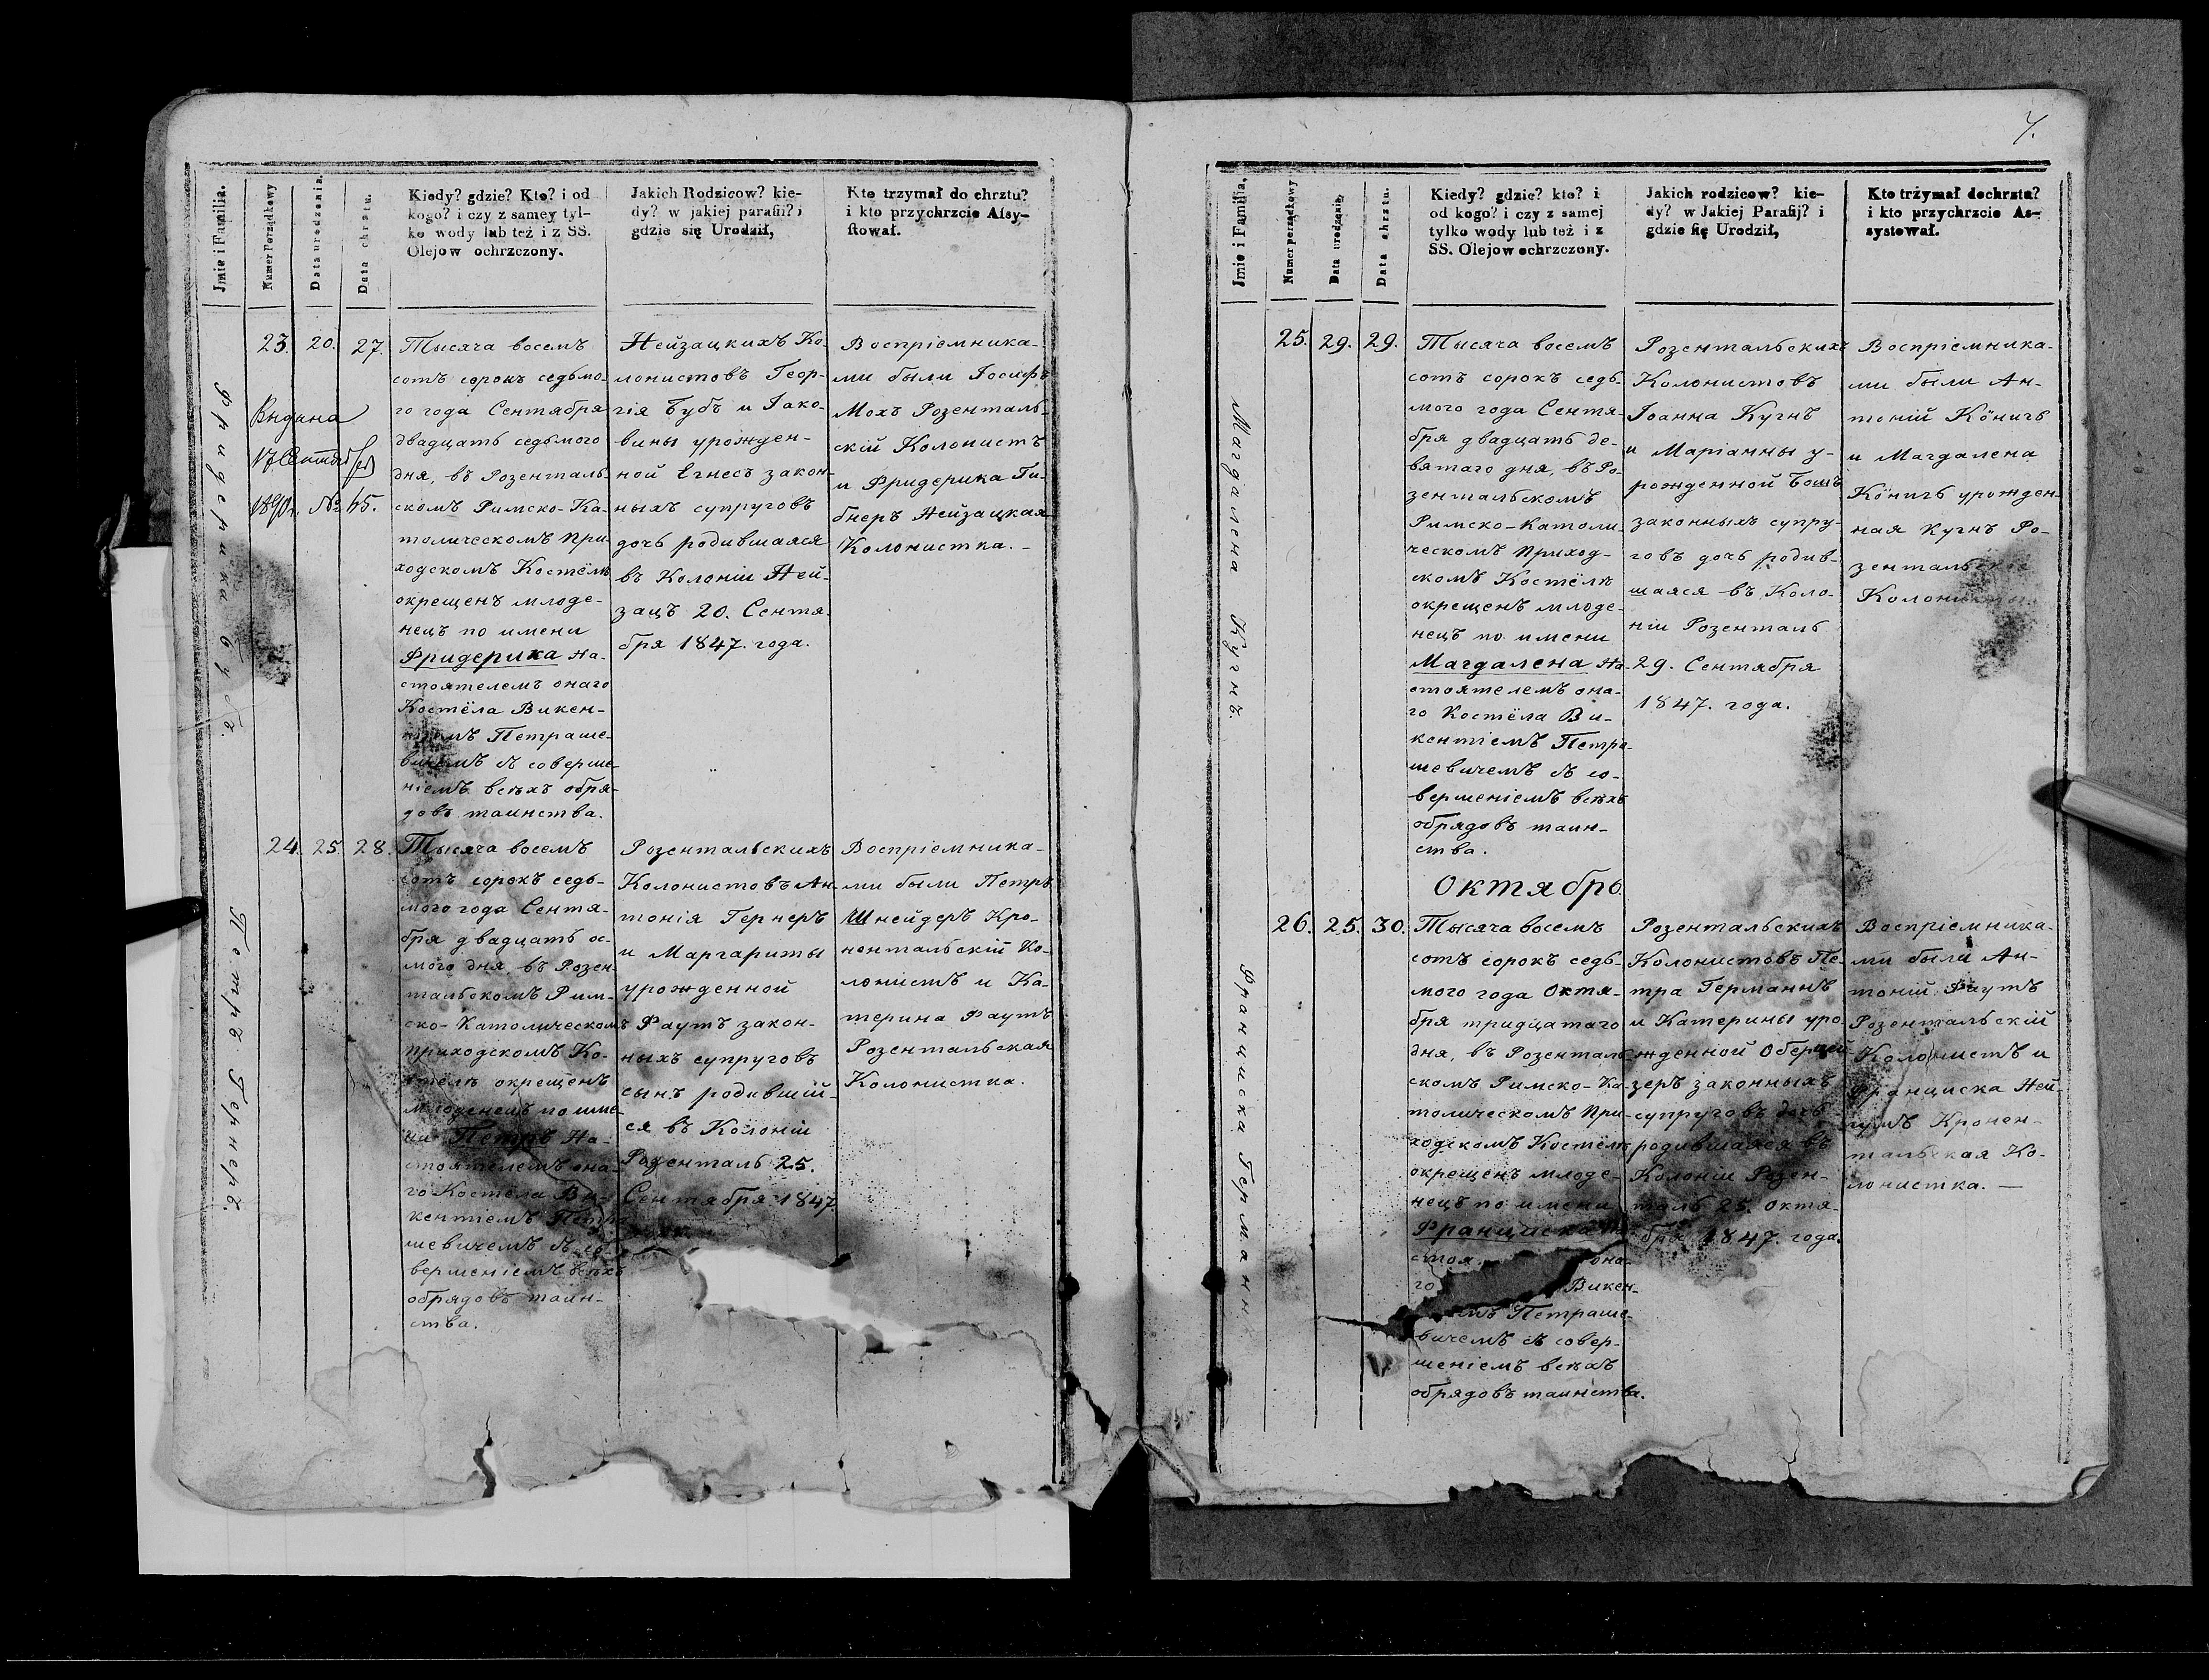 Jmie i Familia.
Numer Porządkowy
Data urodzenia.
Data chrztu.
Kiedy? gdzie? Kto? i od
kogo? i czy z samey tyl-
ko wody lub też i z SS.
Olejow ochrzczony.
Jakich Rodzicow? kie-
dy? w jakiej parafii? i
gdzie się Urodził,
Kto trzymał do chrztu?
i kto przychrzcie Aſsy-
ſtował.
Фридерика Бубъ.
23.
20.
27.
Выдана
17 Сентября
1890 г. № 65.
Тысяча восемъ
сотъ сорокъ седьмо-
го года Сентября
двадцать седьмого
дня, въ Розенталь-
скомъ Римско-Ка-
толическомъ При-
ходскомъ Костёлѣ
окрещенъ младе-
нецъ по имени
Фридерика На-
стоятелемъ онаго
Костёла Викен-
тіемъ Петраше-
вичемъ съ соверше-
ніемъ всѣхъ обря-
довъ таинства.
Нейзацкихъ Ко-
лонистовъ Геор-
гія Бубъ и Іако-
вины урожден-
ной Егнесъ закон-
ныхъ супруговъ
дочь родившаяся
въ Колоніи Ней-
зацъ 20. Сентя-
бря 1847. года.
Воспріемника-
ми были Іосифъ
Мохъ Розенталь-
скій Колонистъ
и Фридерика Ги-
бнеръ Нейзацкая
Колонистка. -
Петръ Гернеръ.
24.
25.
28.
Тысяча восемъ
сотъ сорокъ седь-
мого года Сентя-
бря двадцать ос-
мого дня, въ Розен-
тальскомъ Рим-
ско-Католическомъ
приходскомъ Ко-
стёлѣ окрещенъ
младенецъ по име-
ни Петръ На-
стоятелемъ она-
го Костёла Ви-
кентіемъ Петра-
шевичемъ съ со-
вершеніемъ всѣхъ
обрядовъ таин-
ства.
Розентальскихъ
Колонистовъ Ан-
тонія Гернеръ
и Маргариты
урожденной
Фаутъ закон-
ныхъ супруговъ
сынъ родившій-
ся въ Колоніи
Розенталь 25.
Сентября 1847
Воспріемника-
ми были Петръ
Шнейдеръ Кро-
нентальскій Ко-
лонистъ и Ка-
терина Фаутъ
Розентальская
Колонистка.
7.
Jmie i Familia.
Numer porządkowy
Data urodzenia,
Data chrztu.
Kiedy? gdzie? kto? i
od kogo? i czy z samej
tylko wody lub też i z
SS. Olejow ochrzczony.
Jakich rodzicow? kie-
dy? w Jakiej Parafij? i
gdzie ſię Urodził,
Kto trżymał dochrzta?
i kto przychrzcie As-
systował.
Магдалена Кугнъ.
25.
29.
29.
Тысяча восемъ
сотъ сорокъ седь-
мого года Сентя-
бря двадцать де-
вятаго дня, въ Ро-
зентальскомъ
Римско-Католи-
ческомъ Приход-
скомъ Костёлѣ
окрещенъ младе-
нецъ по имени
Магдалена На-
стоятелемъ она-
го Костёла Ви-
кентіемъ Петра-
шевичемъ съ со-
вершеніемъ всѣхъ
обрядовъ таин-
ства.
Розентальскихъ
Колонистовъ
Іоанна Кугнъ
и Маріанны у-
рожденной Бошъ
законныхъ супру-
говъ дочь родив-
шаяся въ Коло-
ніи Розенталь
29. Сентября
1847. года.
Воспріемника-
ми были Ан-
тоній Кöнигъ
и Магдалена
Кöнигъ урожден-
ная Кугнъ Ро-
зентальскіе
Колонисты.
Октябрь
Франциска Германн
26.
25.
30.
Тысяча восемъ
сотъ сорокъ седь-
мого года Октя-
бря тридцатаго
дня, въ Розенталь-
скомъ Римско-Ка-
толическомъ При-
ходскомъ Костёлѣ
окрещенъ младе-
нецъ по имени
Франциска
стоя она-
го Викен-
мъ Петраше-
вичемъ съ совер-
шеніемъ всѣхъ
обрядовъ таинства.
Розентальскихъ
Колонистовъ Пе-
тра Германнъ
и Катерины уро-
жденной Обершей-
зеръ законныхъ
супруговъ дочь
родившаяся въ
Колоніи Розен-
таль 25. Октя-
бря 1847. года.
Воспріемника-
ми были Ан-
тоній Фаутъ
Розентальскій
Колонистъ и
Франциска Ней-
гумъ Кронен-
тальская Ко-
лонистка. —